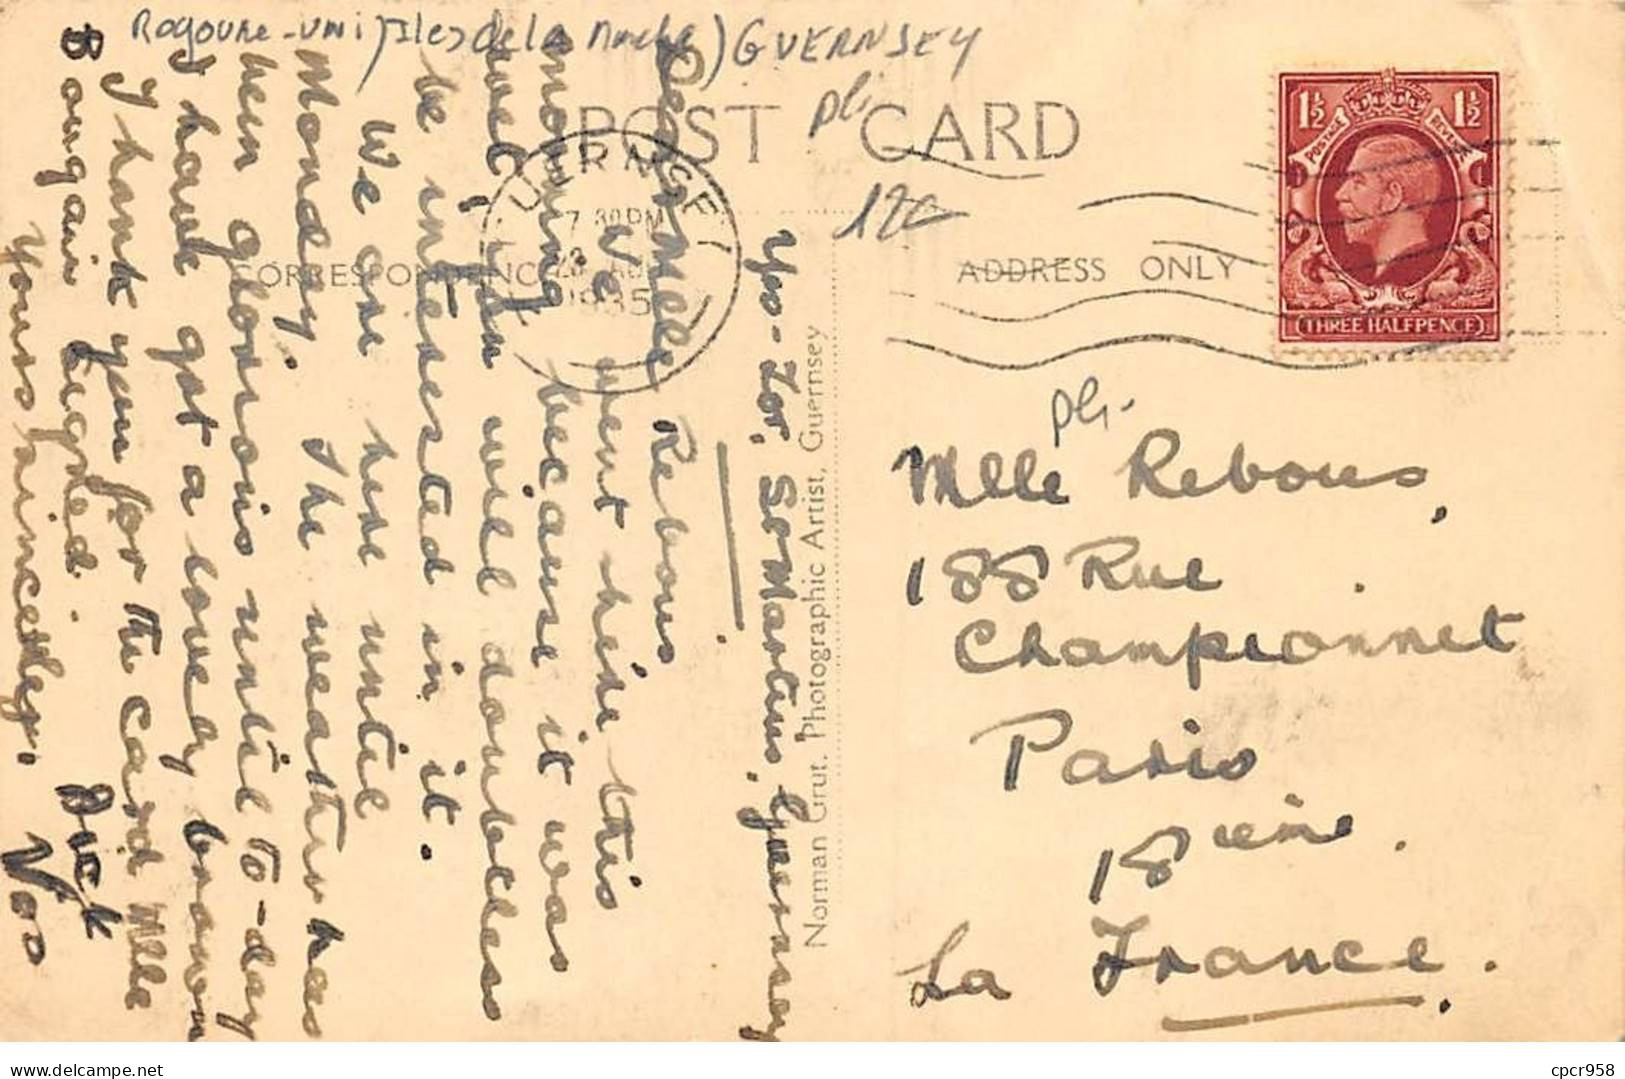 Royaume-uni (Iles de la Manche) GUERNSEY
POST CARD
pli
120
CORRESPONDENCE
ADDRESS ONLY
GUERNSEY
7.30PM
1935
1½ 1½
POSTAGE REVENUE
THREE HALFPENCE
Norman Grut, Photographic Artist, Guernsey
St Martins, Guernsey
Dear Mlle Rebous
We went here this
morning because it was
wet. You will doubtless
be interested in it.
We are here until
Monday. The weather has
been glorious until to-day
I have got a lovely brown
I thank you for the card Mlle
Bougain signed.
Yours sincerely,
Dick
Vos
pli-
Mlle Rebous,
188 Rue
Championnet
Paris
18ième.
La France.
cpcr958